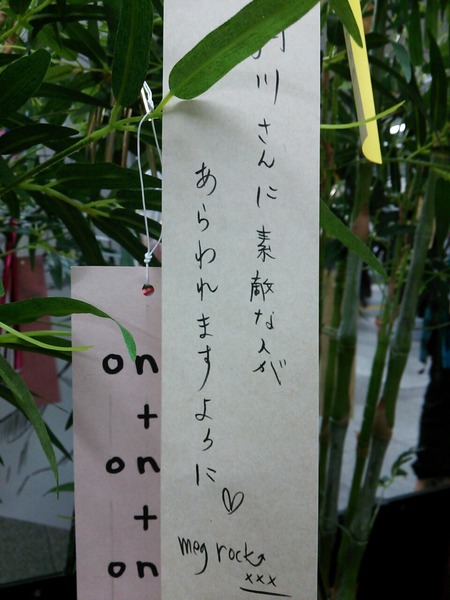 川さんに素敵な人が
あらわれますように♡
meg rock
xxx
on
+
on
+
on